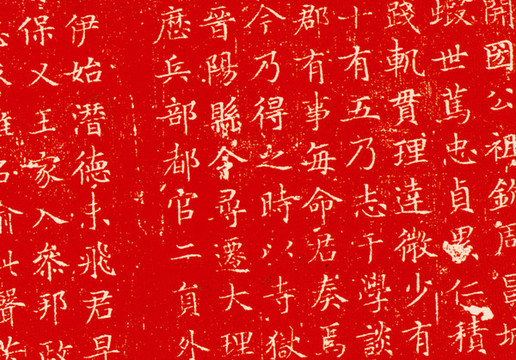 開國公祖銳周冒城
嘏世篤忠貞累仁積
踐軌貫理達微少有
十有五乃志于學談
郡有事每命君奏焉
今乃得之時以寺獄
晉陽縣令尋遷大理
歷兵部都官二員外
伊始潛德未飛君早
保乂王家入參邦政